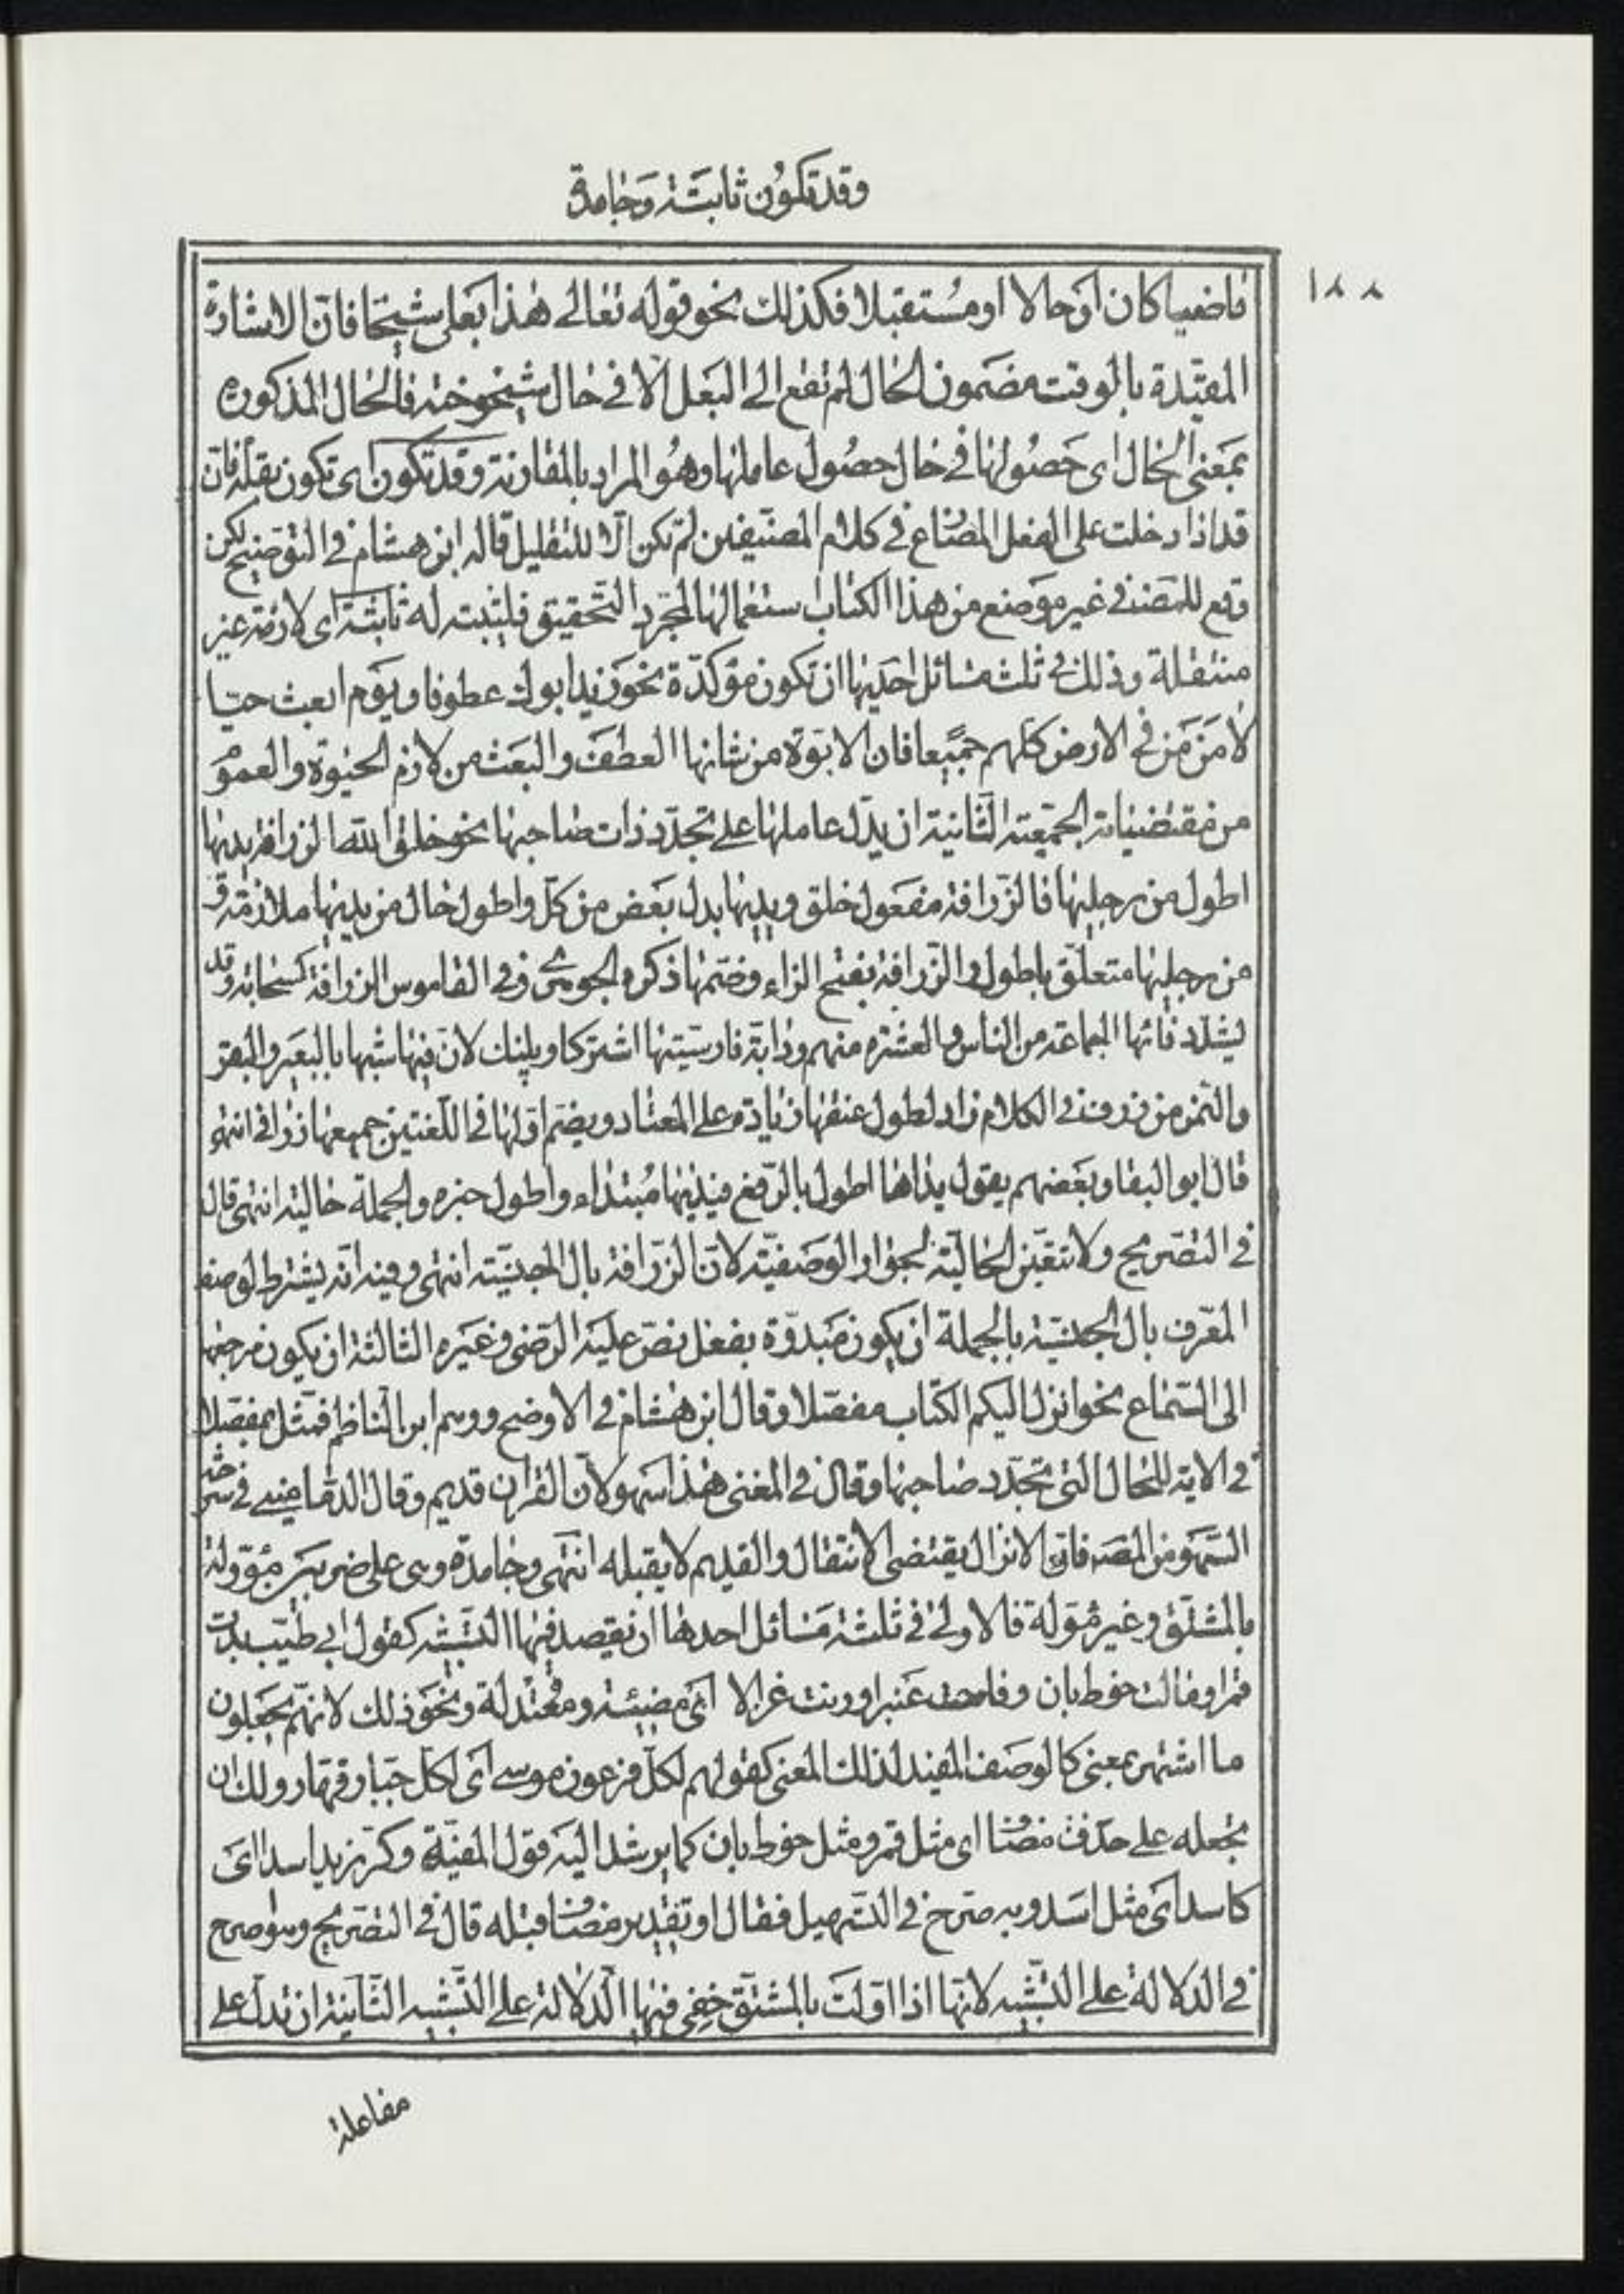 وقد تكون ثابتة وجامدة
١٨٨
ماضيا كان او حالا او مستقبلا فكذلك نحو قوله تعالى هذا بعلى شيخا فان الاشارة
المقيدة بالوقت مضمون الحال لم تقع الى البعل الا فى حال شيخوخته فالحال المذكورة
بمعنى الحال اى حصولها فى حال حصول عاملها وهو المراد بالمقارنة وقد تكون اى تكون بقلة فان
قد اذا دخلت على الفعل المضارع فى كلام المصنفين لم تكن الا للتقليل قاله ابن هشام فى التوضيح لكن
وقع للمصنف فى غير موضع من هذا الكتاب استعمالها لمجرد التحقيق فليثبت له ثابتة اى لازمة غير
منتقلة وذلك فى ثلث مسائل احديها ان تكون مؤكدة نحو زيد ابوك عطوفا ويوم ابعث حيا
لامن من فى الارض كلهم جميعا فان الابوة من شانها العطف والبعث من لازم الحيوة والعموم
من مقتضيات الجمعية الثانية ان يدل عاملها على تجدد ذات صاحبها نحو خلق الله الزرافة يديها
اطول من رجليها فالزرافة مفعول خلق ويديها بدل بعض من كل واطول حال من يديها ملازمة و
من رجليها متعلق باطول والزرافة بفتح الزاء وضمها ذكره الجوهرى وفى القاموس الزرافة كسحابة وقد
يشدد فائها الجماعة من الناس والعشرة منهم ودابة فارسيتها اشتركاوپلنك لان فيها شبها بالبعير والبقر
والنمر من زرف فى الكلام زاد لطول عنقها زيادة على المعتاد ويضم اولها فى اللغتين جميعها زرافى انتهى
قال ابو البقا وبعضهم يقول يداها اطول بالرفع فيديها مبتداء واطول خبره والجملة حالية انتهى قال
فى التصريح ولا تتعين الحالية لجواز الوصفية لان الزرافة بال الجنسية انتهى وفيه انه يشترط لوصف
المعرف بال الجنسية بالجملة ان يكون مبدوة بفعل نص عليه الرضى وغيره الثالثة ان يكون مرجعها
الى السماع نحو انزل اليكم الكتاب مفصلا وقال ابن هشام فى الاوضح ووهم ابن الناظم فمثل بمفصلا
فى الاية للحال التى تجدد صاحبها وقال فى المغنى هذا سهو لان القران قديم وقال الدمامينى فى شرحه
السهو من المصـ فان الانزال يقتضى الانتقال والقديم لا يقبله انتهى وجامدة وهى على ضربين مؤولة
بالمشتق وغير مؤولة فالاولى فى ثلثة مسائل احدها ان يقصد فيها التشبيه كقول ابى طيب بدت
قمرا ومالت خوط بان وفاحت عنبرا ورنت غزالا اى مضيئة ومعتدلة ونحو ذلك لانهم يجعلون
ما اشتهر بمعنى كالوصف المفيد لذلك المعنى كقولهم لكل فرعون موسى اى لكل جبار قهار ولك ان
تجعله على حذف مضاف اى مثل قمر ومثل خوط بان كما يرشد اليه قول الفية وكر زيد اسدا اى
كاسد اى مثل اسد وبه صرح فى التسهيل فقال او تقدير مضاف قبله قال فى التصريح وهو اصرح
فى الدلالة على التشبيه لانها اذا اولت بالمشتق خفى فيها الدلالة على التشبيه الثانية ان تدل على
مفاعلة